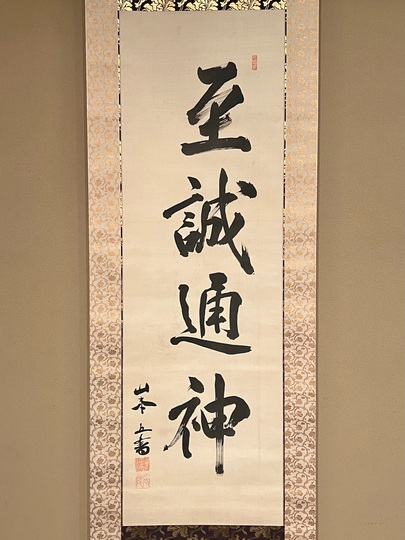 至誠通神
山本五書